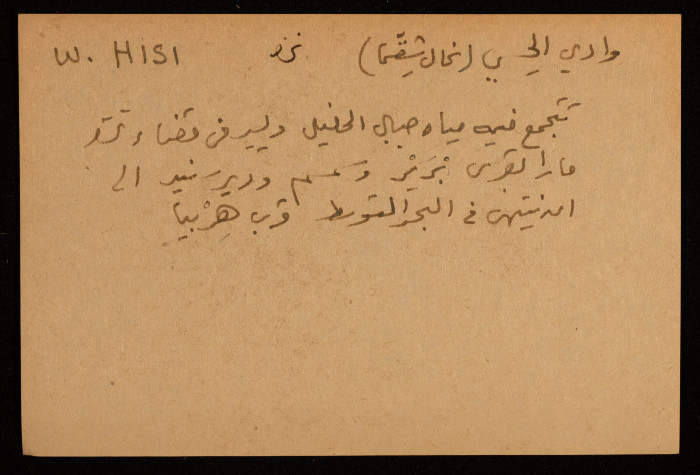 وادي الحسي (نحال شِقْما) غزة W. HISI
تتجمع فيه مياه جبال الخليل ويسير في قضاء غزة
مارا بقرى بُرَيْر وسمسم ودير سنيد الى
ان ينتهي في البحر المتوسط قرب هِرْبيا